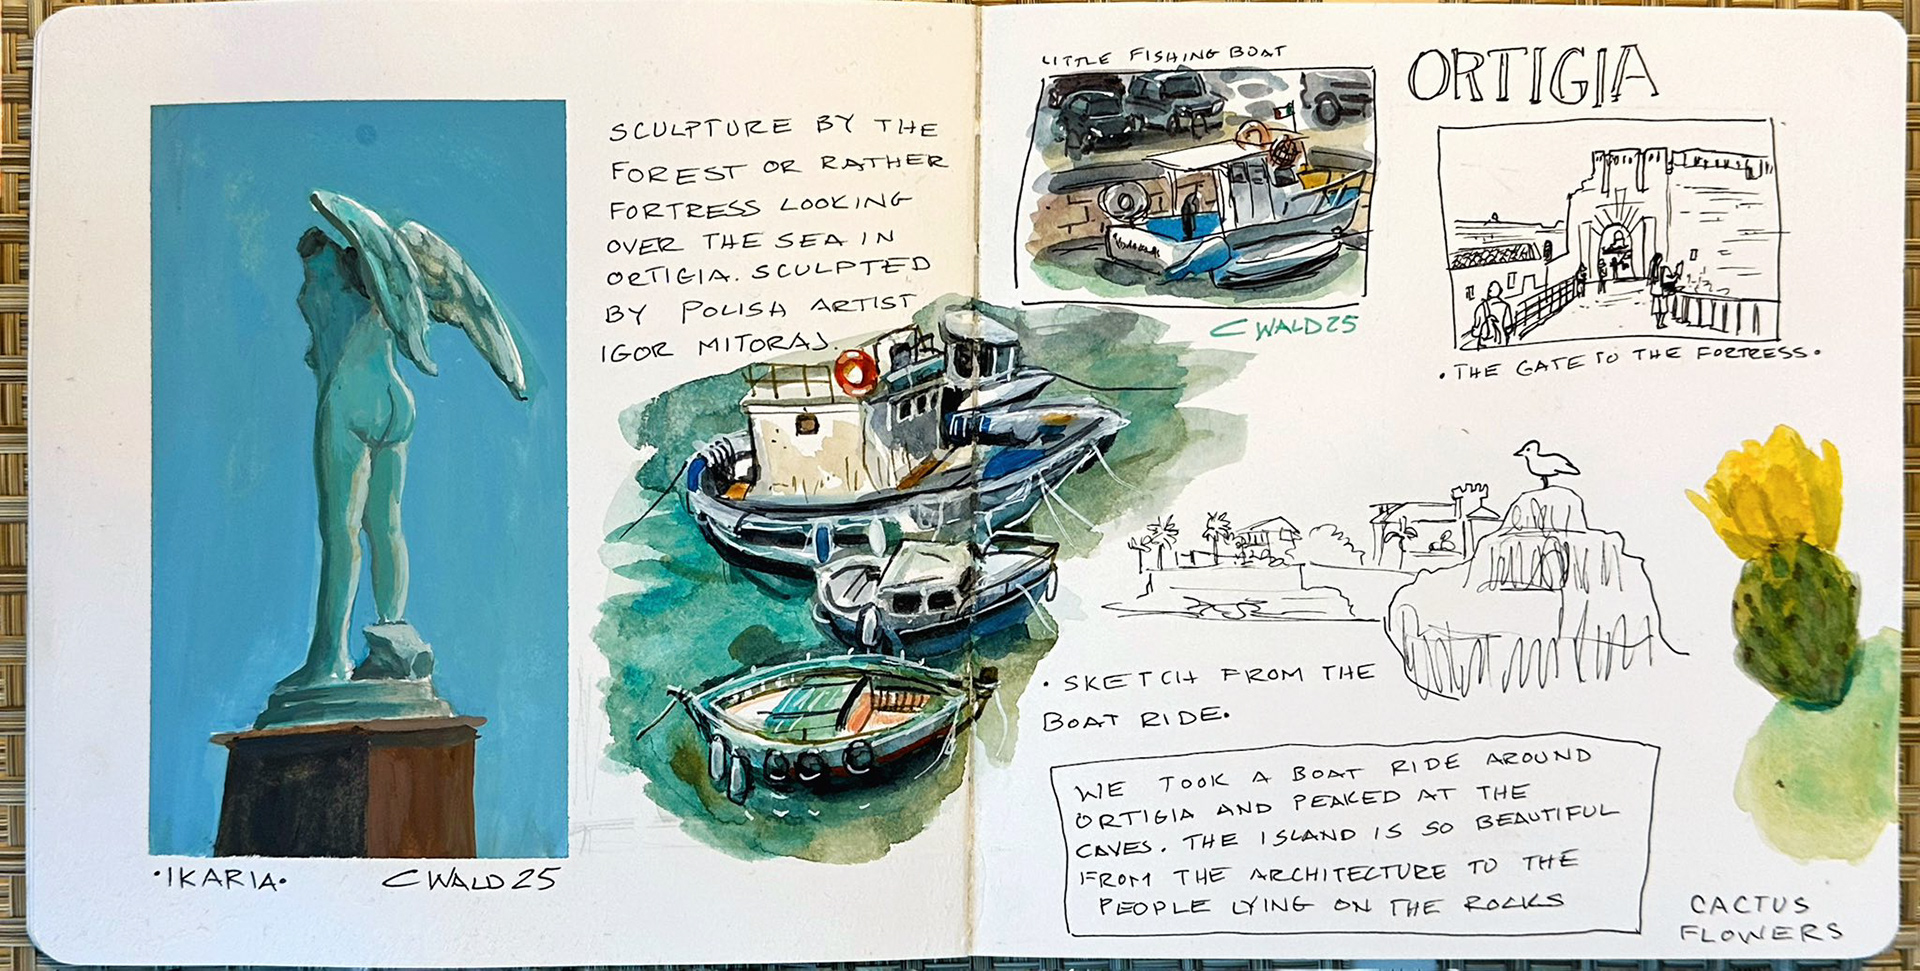 SCULPTURE BY THE
FOREST OR RATHER
FORTRESS LOOKING
OVER THE SEA IN
ORTIGIA. SCULPTED
BY POLISH ARTIST
IGOR MITORAJ.
·IKARIA·
C WALD 25
LITTLE FISHING BOAT
C WALD 25
ORTIGIA
·THE GATE TO THE FORTRESS.
·SKETCH FROM THE
BOAT RIDE.
WE TOOK A BOAT RIDE AROUND
ORTIGIA AND PEAKED AT THE
CAVES. THE ISLAND IS SO BEAUTIFUL
FROM THE ARCHITECTURE TO THE
PEOPLE LYING ON THE ROCKS
CACTUS
FLOWERS